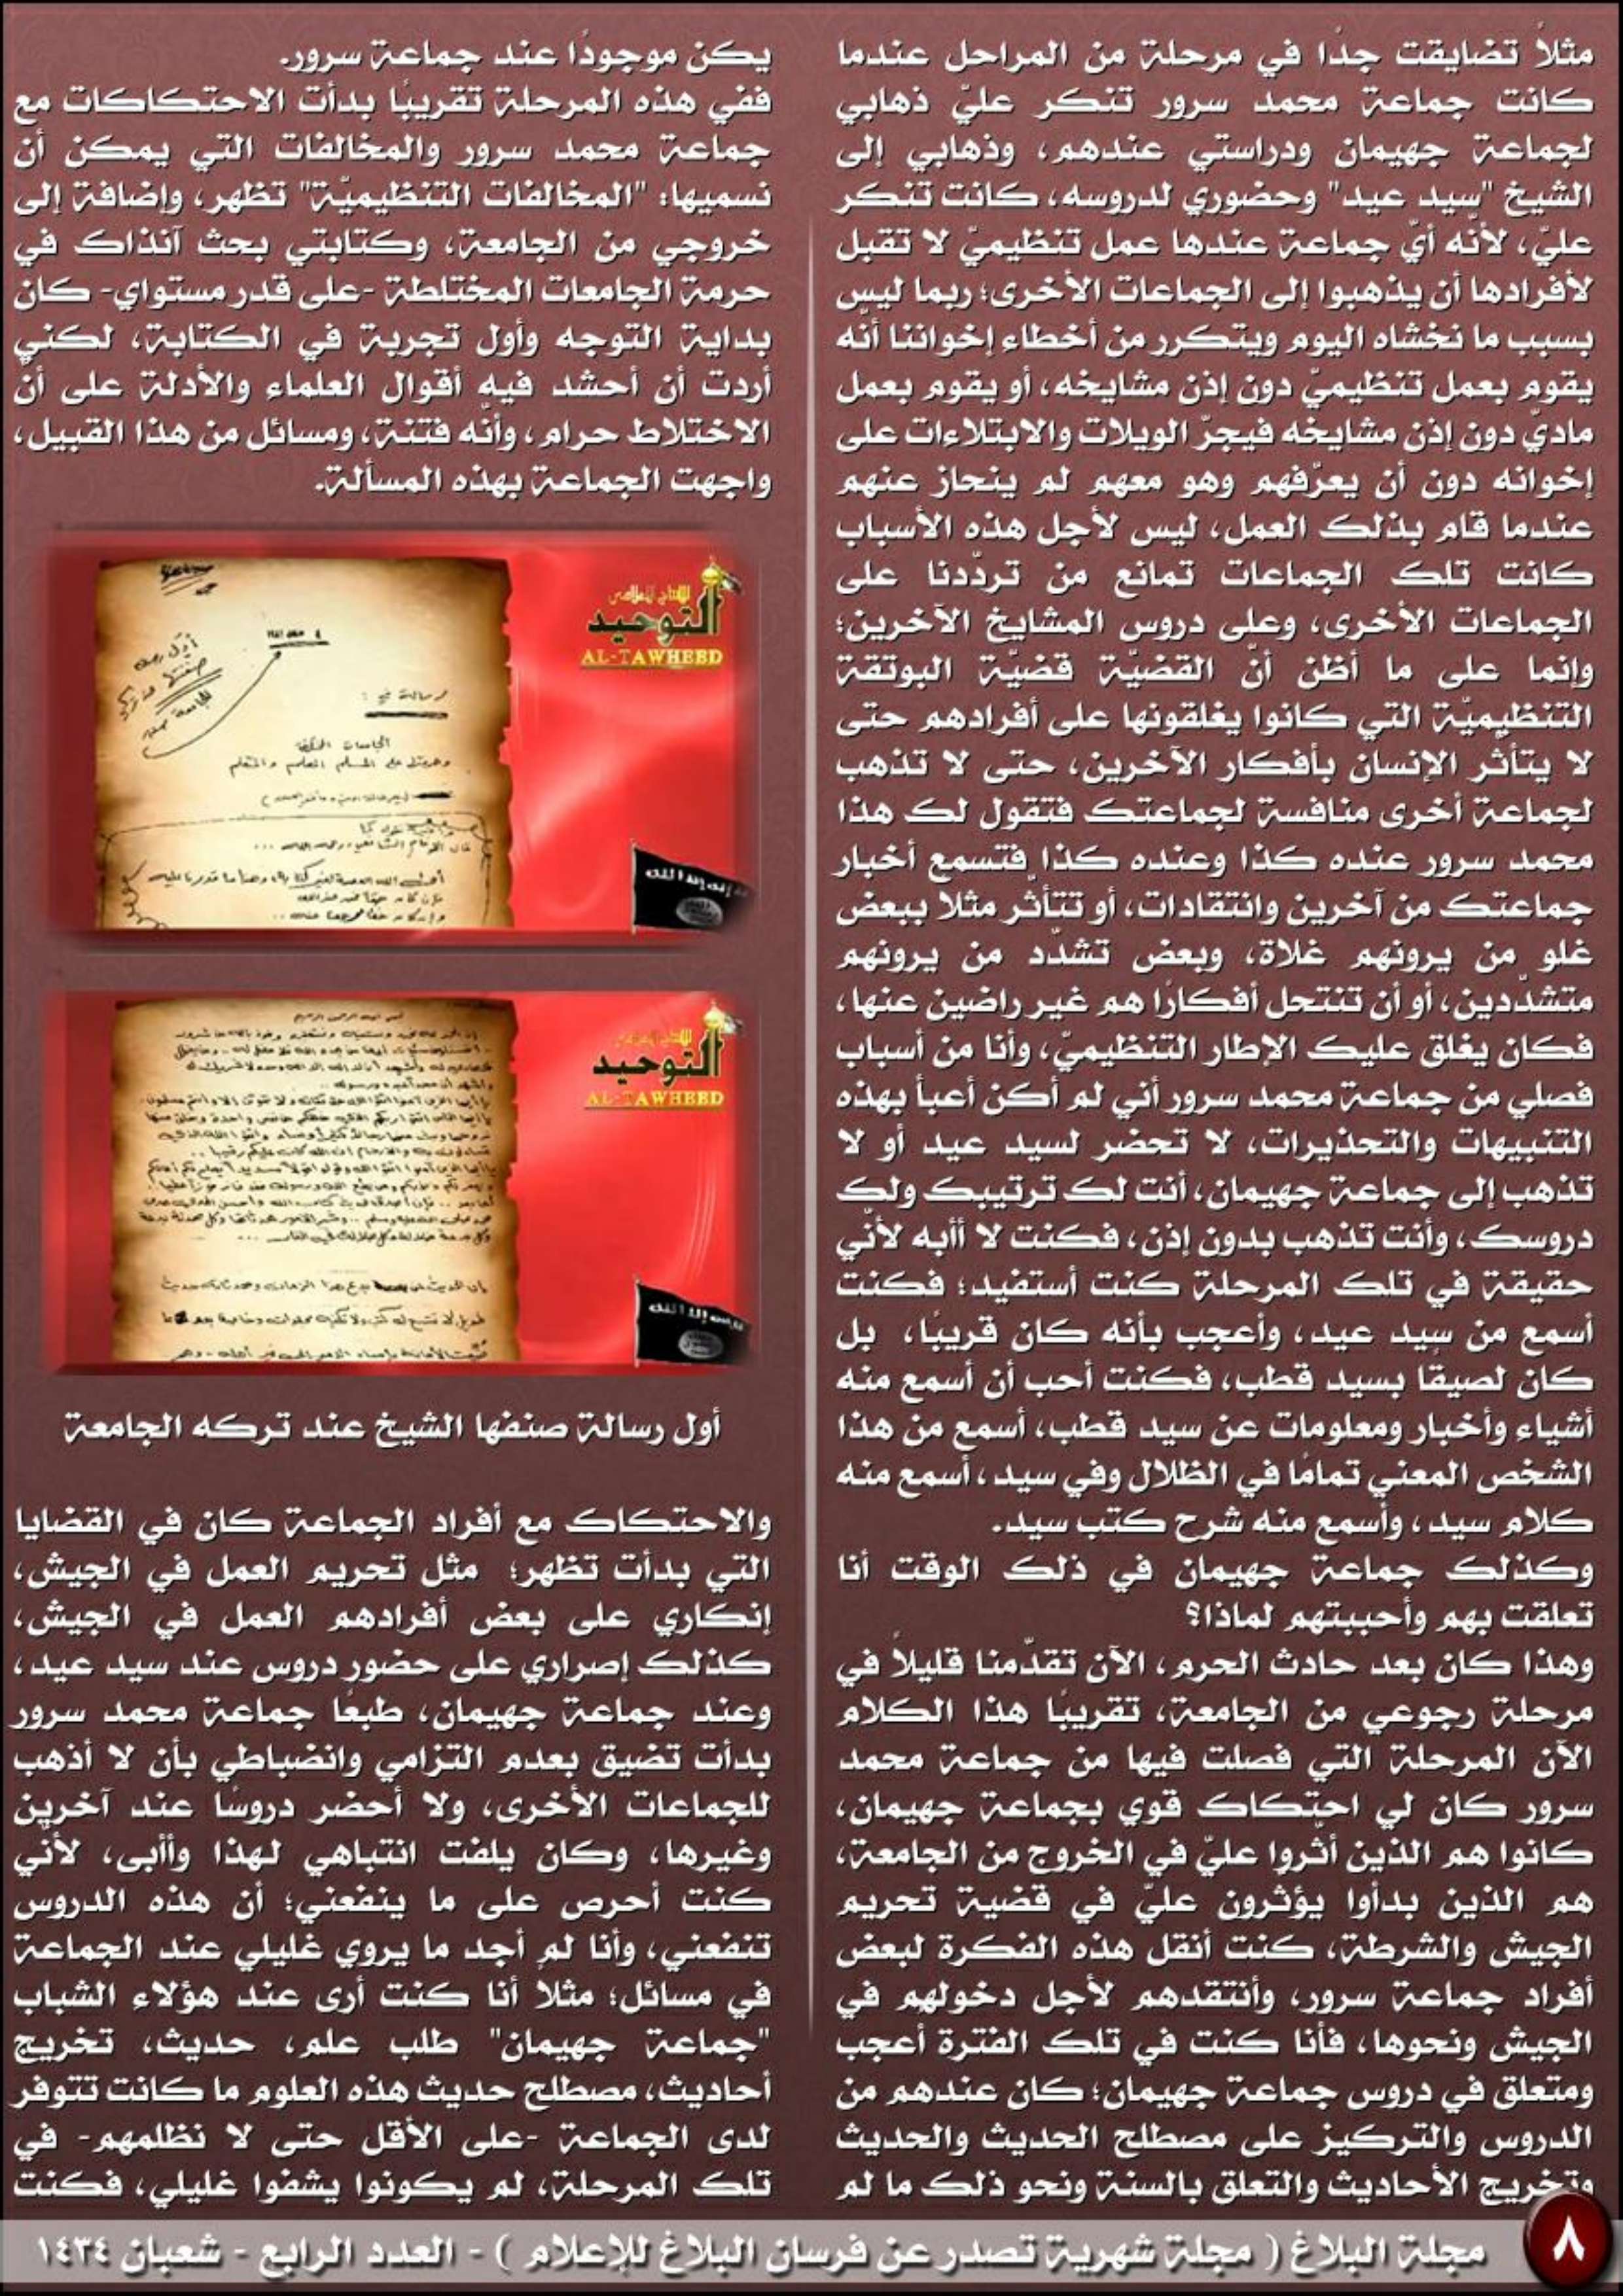 مثلاً تضايقت جدًا في مرحلة من المراحل عندما
كانت جماعة محمد سرور تنكر عليّ ذهابي
لجماعة جهيمان ودراستي عندهم، وذهابي إلى
الشيخ "سيد عيد" وحضوري لدروسه، كانت تنكر
عليّ، لأنّه أيّ جماعة عندها عمل تنظيميّ لا تقبل
لأفرادها أن يذهبوا إلى الجماعات الأخرى؛ ربما ليس
بسبب ما نخشاه اليوم ويتكرر من أخطاء إخواننا أنّه
يقوم بعمل تنظيميّ دون إذن مشايخه، أو يقوم بعمل
ماديّ دون إذن مشايخه فيجرّ الويلات والابتلاءات على
إخوانه دون أن يعرّفهم وهو معهم لم ينحاز عنهم
عندما قام بذلك العمل، ليس لأجل هذه الأسباب
كانت تلك الجماعات تمانع من تردّدنا على
الجماعات الأخرى، وعلى دروس المشايخ الآخرين؛
وإنما على ما أظن أنّ القضيّة قضيّة البوتقة
التنظيميّة التي كانوا يغلقونها على أفرادهم حتى
لا يتأثّر الإنسان بأفكار الآخرين، حتى لا تذهب
لجماعة أخرى منافسة لجماعتك فتقول لك هذا
محمد سرور عنده كذا وعنده كذا فتسمع أخبار
جماعتك من آخرين وانتقادات، أو تتأثّر مثلا ببعض
غلو من يرونهم غلاة، وبعض تشدّد من يرونهم
متشدّدين، أو أن تنتحل أفكارًا هم غير راضين عنها،
فكان يغلق عليك الإطار التنظيميّ، وأنا من أسباب
فصلي من جماعة محمد سرور أني لم أكن أعبأ بهذه
التنبيهات والتحذيرات، لا تحضر لسيد عيد أو لا
تذهب إلى جماعة جهيمان، أنت لك ترتيبك ولك
دروسك، وأنت تذهب بدون إذن، فكنت لا أأبه لأنّي
حقيقة في تلك المرحلة كنت أستفيد؛ فكنت
أسمع من سيد عيد، وأعجب بأنه كان قريبًا، بل
كان لصيقًا بسيد قطب، فكنت أحب أن أسمع منه
أشياء وأخبار ومعلومات عن سيد قطب، أسمع من هذا
الشخص المعني تمامًا في الظلال وفي سيد، أسمع منه
كلام سيد، وأسمع منه شرح كتب سيد.
وكذلك جماعة جهيمان في ذلك الوقت أنا
تعلقت بهم وأحببتهم لماذا؟
وهذا كان بعد حادث الحرم، الآن تقدّمنا قليلاً في
مرحلة رجوعي من الجامعة، تقريبًا هذا الكلام
الآن المرحلة التي فصلت فيها من جماعة محمد
سرور كان لي احتكاك قوي بجماعة جهيمان،
كانوا هم الذين أثّروا عليّ في الخروج من الجامعة،
هم الذين بدأوا يؤثرون عليّ في قضية تحريم
الجيش والشرطة، كنت أنقل هذه الفكرة لبعض
أفراد جماعة سرور، وأنتقدهم لأجل دخولهم في
الجيش ونحوها، فأنا كنت في تلك الفترة أعجب
ومتعلق في دروس جماعة جهيمان؛ كان عندهم من
الدروس والتركيز على مصطلح الحديث والحديث
وتخريج الأحاديث والتعلق بالسنة ونحو ذلك ما لم
يكن موجودًا عند جماعة سرور.
ففي هذه المرحلة تقريبًا بدأت الاحتكاكات مع
جماعة محمد سرور والمخالفات التي يمكن أن
نسميها: "المخالفات التنظيميّة" تظهر، وإضافة إلى
خروجي من الجامعة، وكتابتي بحث آنذاك في
حرمة الجامعات المختلطة -على قدر مستواي- كان
بداية التوجه وأول تجربة في الكتابة، لكني
أردت أن أحشد فيه أقوال العلماء والأدلة على أنّ
الاختلاط حرام، وأنّه فتنة، ومسائل من هذا القبيل،
واجهت الجماعة بهذه المسألة.
للإنتاج الإعلامي
التوحيد
AL-TAWHEED
رسالة في :
الجامعات المختلطة
للإنتاج الإعلامي
التوحيد
AL-TAWHEED
بسم الله الرحمن الرحيم
أول رسالة صنفها الشيخ عند تركه الجامعة
والاحتكاك مع أفراد الجماعة كان في القضايا
التي بدأت تظهر؛ مثل تحريم العمل في الجيش،
إنكاري على بعض أفرادهم العمل في الجيش،
كذلك إصراري على حضور دروس عند سيد عيد،
وعند جماعة جهيمان، طبعًا جماعة محمد سرور
بدأت تضيق بعدم التزامي وانضباطي بأن لا أذهب
للجماعات الأخرى، ولا أحضر دروسًا عند آخرين
وغيرها، وكان يلفت انتباهي لهذا وأأبى، لأنّي
كنت أحرص على ما ينفعني؛ أن هذه الدروس
تنفعني، وأنا لم أجد ما يروي غليلي عند الجماعة
في مسائل؛ مثلاً أنا كنت أرى عند هؤلاء الشباب
"جماعة جهيمان" طلب علم، حديث، تخريج
أحاديث، مصطلح حديث هذه العلوم ما كانت تتوفر
لدى الجماعة -على الأقل حتى لا نظلمهم- في
تلك المرحلة، لم يكونوا يشفوا غليلي، فكنت
٨
مجلة البلاغ ( مجلة شهرية تصدر عن فرسان البلاغ للإعلام ) - العدد الرابع - شعبان ١٤٣٤